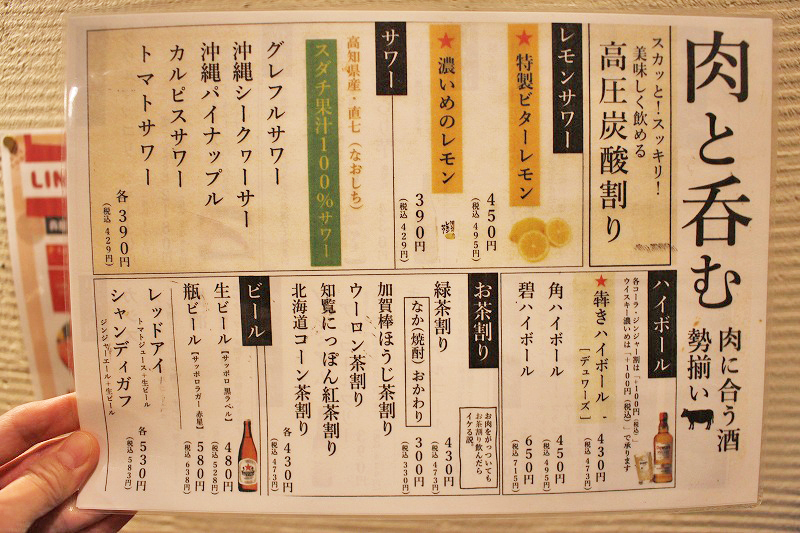 肉と呑む
肉に合う酒
勢揃い
スカッと！スッキリ！
美味しく飲める
高圧炭酸割り
レモンサワー
★特製ビターレモン
450円
(税込 495円)
★濃いめのレモン
390円
(税込 429円)
サワー
高知県産・直七(なおしち)
スダチ果汁100%サワー
グレフルサワー
沖縄シークヮーサー
沖縄パイナップル
カルピスサワー
トマトサワー
各390円
(税込 429円)
ハイボール
各コーラ・ジンジャー割は「+100円(税込)」
ウイスキー濃いめは「+100円(税込)」で承ります
★犇きハイボール
[デュワーズ]
430円
(税込 473円)
角ハイボール
450円
(税込 495円)
碧ハイボール
650円
(税込 715円)
お茶割り
お肉をがっついても
お茶割り飲んだら
イケる説。
緑茶割り
430円
(税込 473円)
なか(焼酎)おかわり
300円
(税込 330円)
加賀棒ほうじ茶割り
ウーロン茶割り
知覧にっぽん紅茶割り
北海道コーン茶割り
各430円
(税込 473円)
ビール
生ビール[サッポロ 黒ラベル]
480円
(税込 528円)
瓶ビール[サッポロラガー 赤星]
580円
(税込 638円)
レッドアイ
トマトジュース+生ビール
シャンディガフ
ジンジャーエール+生ビール
各530円
(税込 583円)
LIN